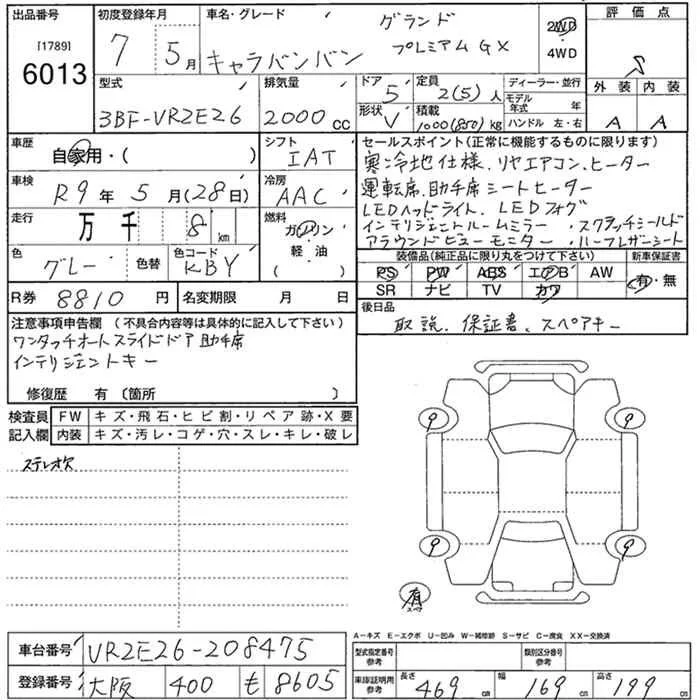 出品番号
[1789]
6013
初度登録年月
7 5月
車名・グレード
グランド
キャラバンバン プレミアムGX
2WD
4WD
評価点
S
外装 内装
A A
型式
3BF-VR2E26
排気量
2000cc
ドア
5
形状
V
定員
2(5)人
積載
1000(850)kg
ディーラー・並行
モデル年式 年
ハンドル 左・右
車歴
自家用・( )
シフト
IAT
車検
R9年5月(28日)
冷房
AAC
走行
万千 8km
燃料
ガソリン
軽・油
( )
色
グレー
色替
色コード
KBY
R券 8810円
名変期限 月 日
セールスポイント(正常に機能するものに限ります)
寒冷地仕様.リヤエアコン.ヒーター
運転席.助手席シートヒーター
LEDヘッドライト.LEDフォグ
インテリジェントルームミラー ・スクラッチシールド
アラウンドビューモニター ・ハーフレザーシート
装備品(純正品に限り丸をつけて下さい)
PS PW ABS エアB AW
SR ナビ TV カワ
新車保証書
有・無
後日品
取説.保証書.スペアキー
注意事項申告欄 (不具合内容等は具体的に記入して下さい)
ワンタッチオートスライドドア助手席
インテリジェントキー
修復歴 有〔箇所 〕
検査員記入欄
FW キズ・飛石・ヒビ割・リペア跡・X要
内装 キズ・汚レ・コゲ・穴・スレ・キレ・破レ
ステレオ欠
9 9
9 9
有
A-キズ E-エクボ U-凹み W-補修跡 S-サビ C-腐食 XX-交換済
車台番号 VR2E26-208475
型式指定番号
参考
類別区分番号
参考
登録番号 大阪 400 せ 8605
車庫証明用
参考
長さ 469cm 幅 169cm 高さ 199cm